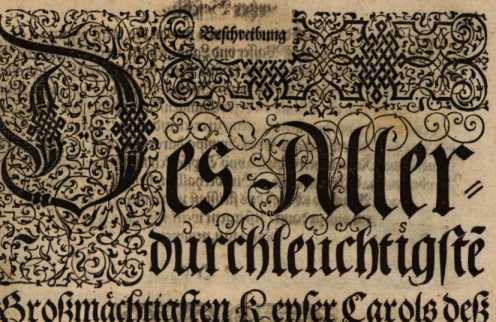 Beschreibung
Des Aller⸗
durchleuchtigstē
Großmächtigsten Keyser Carols deß